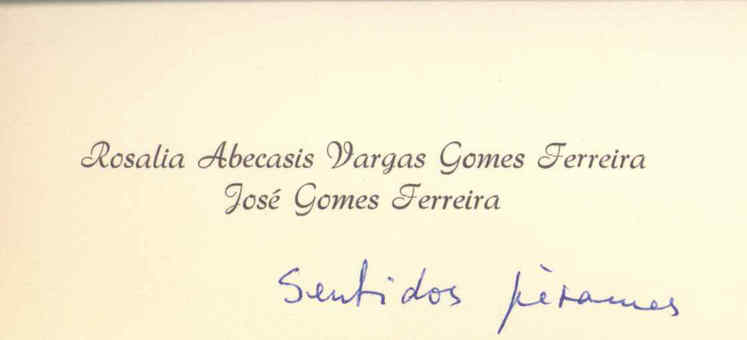 Rosalia Abecasis Vargas Gomes Ferreira
José Gomes Ferreira
Sentidos pêsames